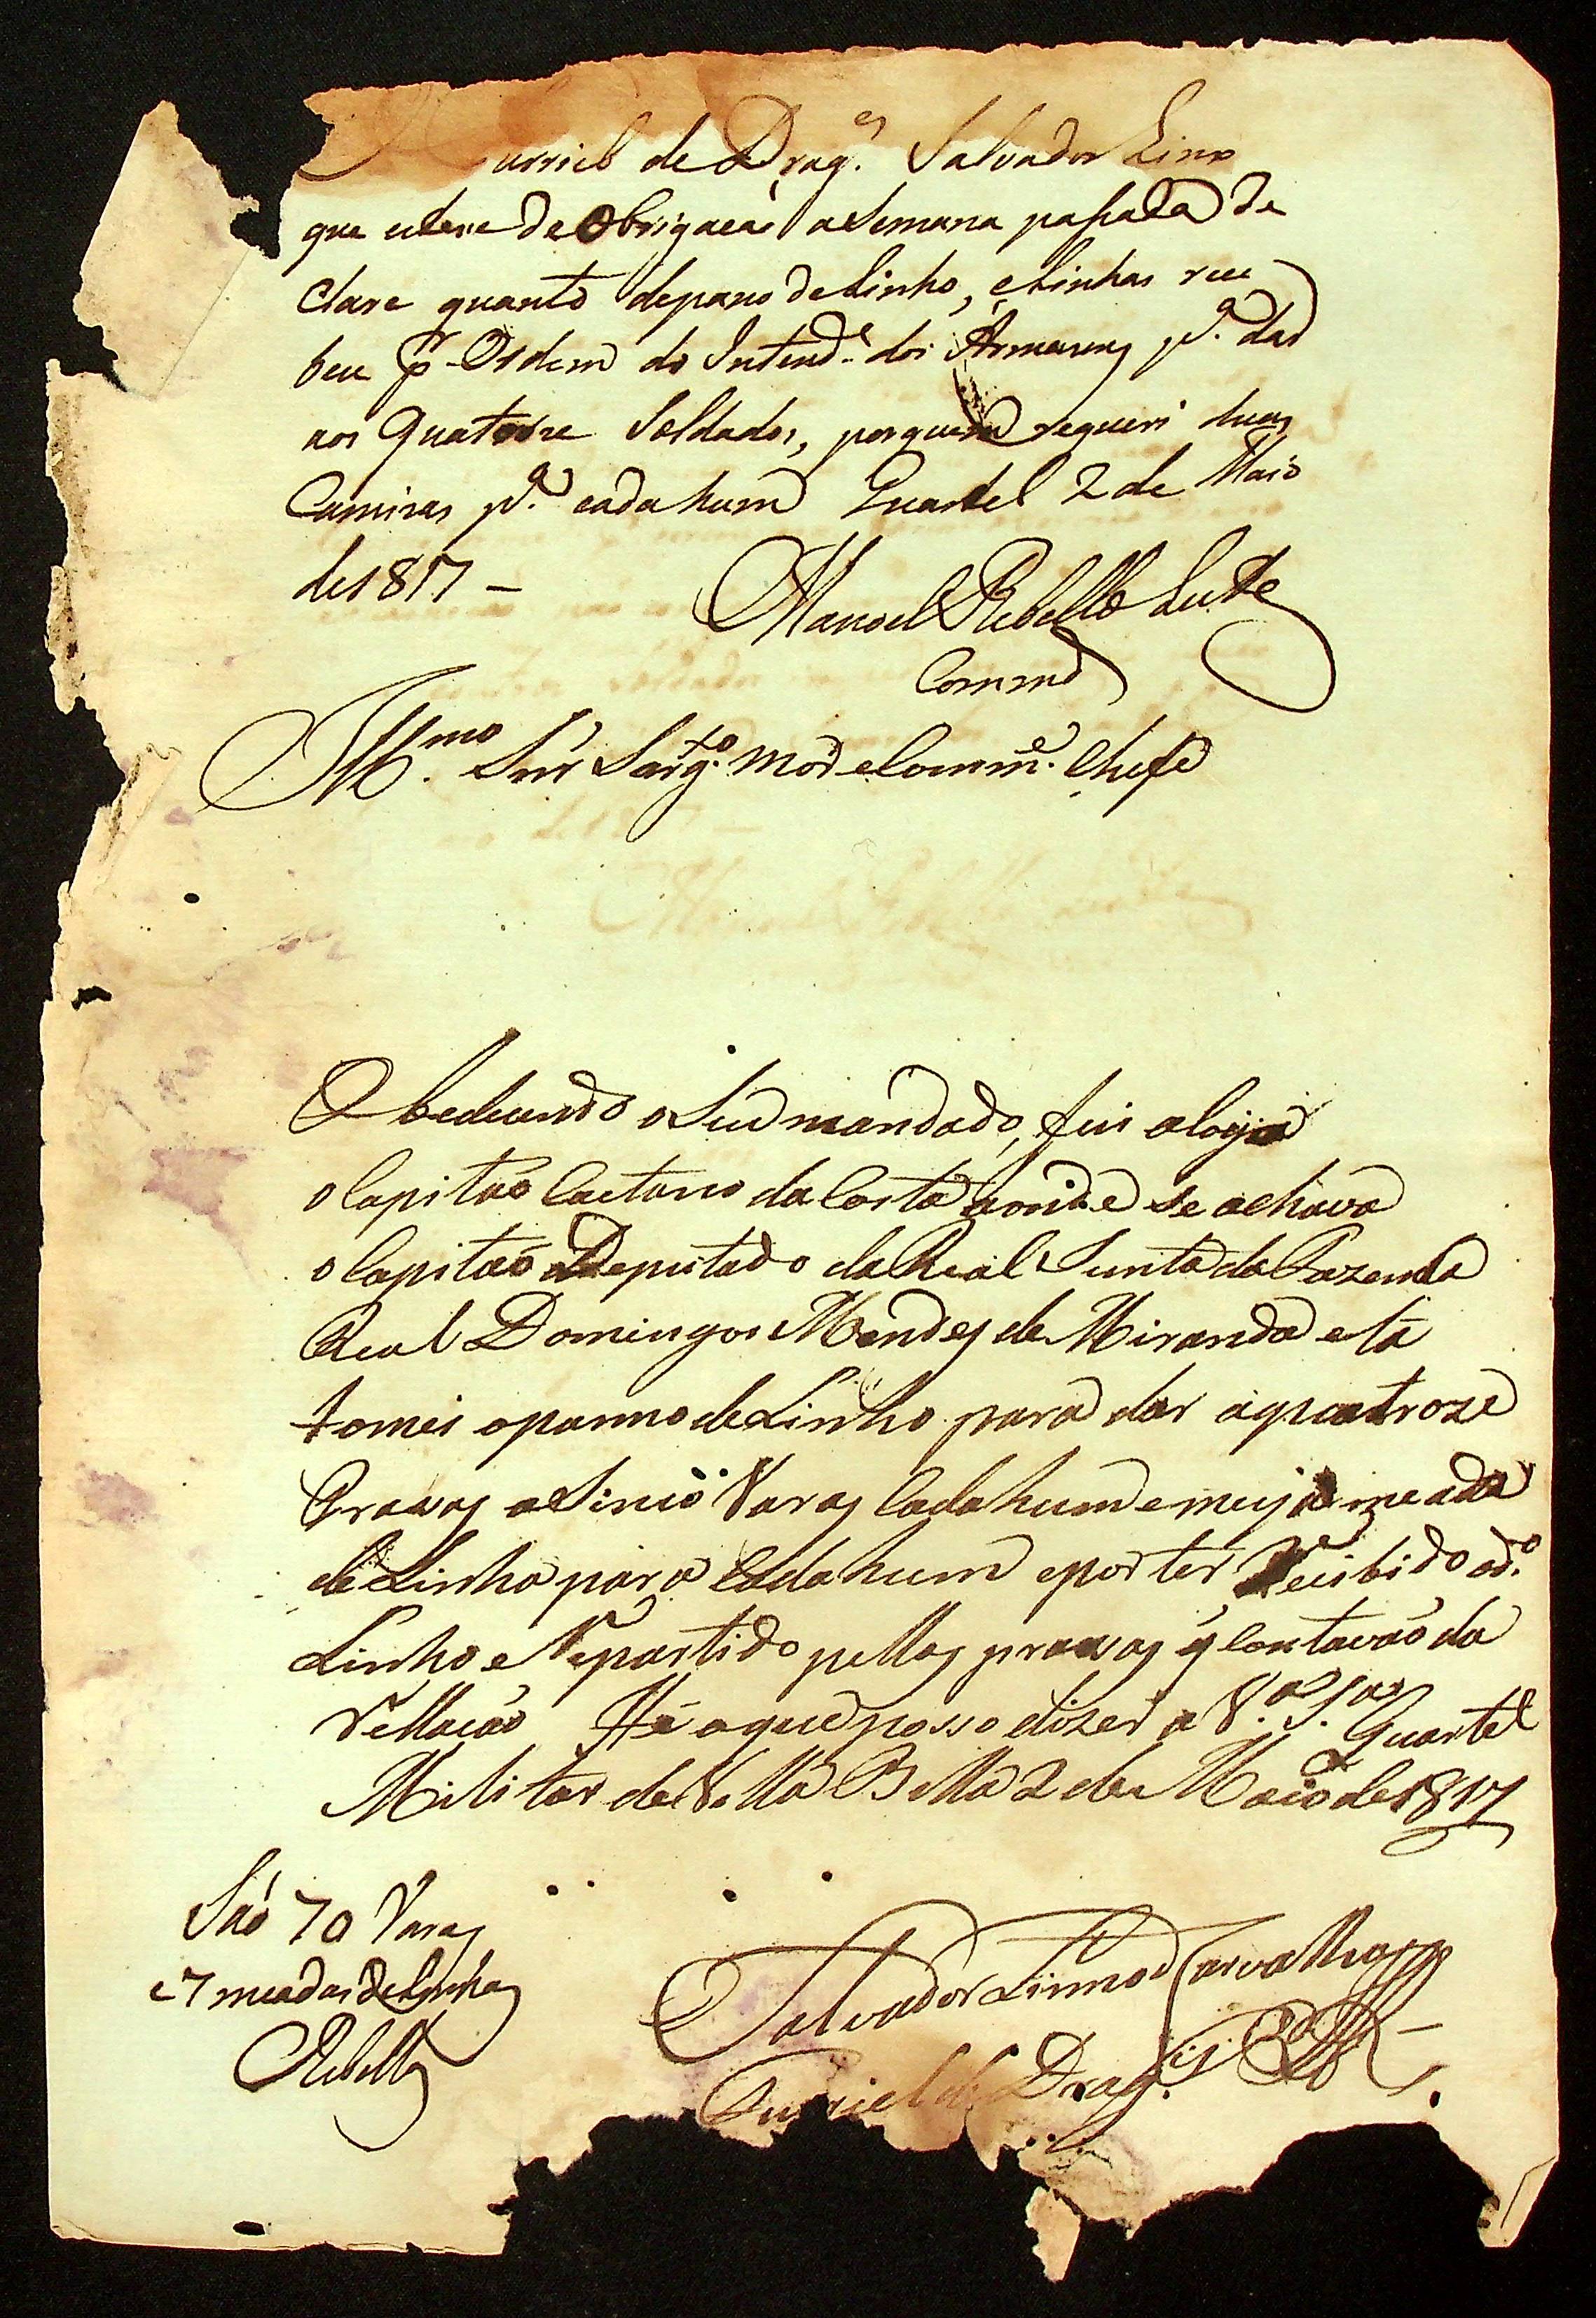 urriel de Drag.es Salvador Lino
que esteve de Obrigacaõ a Semana passada de
clare quanto depano deLinho, eLinhas rece
beu pr Ordem do Intend.e dos Armazens p.a dar
aos Quatorze Soldados, porquem requeri duas
Camizas p.a cadahum Quartel 2 de Maio
de1817 –
Manoel Rebello Leite
Commd
Ill.mo Snr Sarg.to Mor eComm.e Chefe
Obedecendo oSeu mandado, fui aloija
oCapitaõ Caetano daCosta aonde se achava
oCapitaõ Deputado daReal Junta daFazenda
Real Domingos Mendes deMiranda elá
tomei opanno deLinho para dar aquatroze
Prasas aSinco Varas Cadahum emeija meada
deLinha para Cadahum epor ter Recibido od.o
Linho eRepartido pellas prasas q Contavaõ da
Rellacaõ Hé oque posso dizer a V.a S.a Quartel
Militar deVilla Bella 2 de Maio de1817
Saõ 70 Varas
e7 meadas deLinhas
Rebello
Salvador Linno Carvalho
Furriel de Drag.es